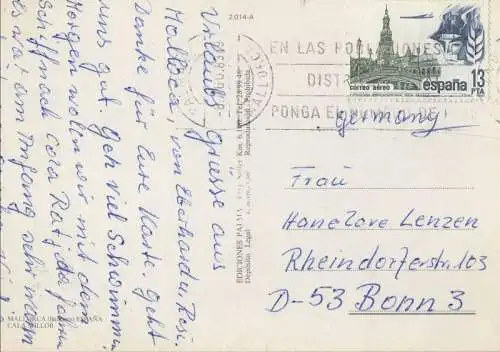 Urlaubs-Grüsse aus
Mallorca, von Eberhard u. Resi.
Danke für Eure Karte. Geht
uns gut. Geh viel Schwimmen
Morgen wollen wir mit dem
Schiff nach
am Anfang sehr warm
MALLORCA ESPAÑA
CALA MILLOR
2.014-A
EDICIONES PALMA
Depósito Legal
Reproducción Prohibida
EN LAS POBLACIONES
DISTR
PONGA EL
CORREO AEREO
españa
13
PTA
Germany
Frau
Hanelore Lenzen
Rheindorferstr. 103
D-53 Bonn 3